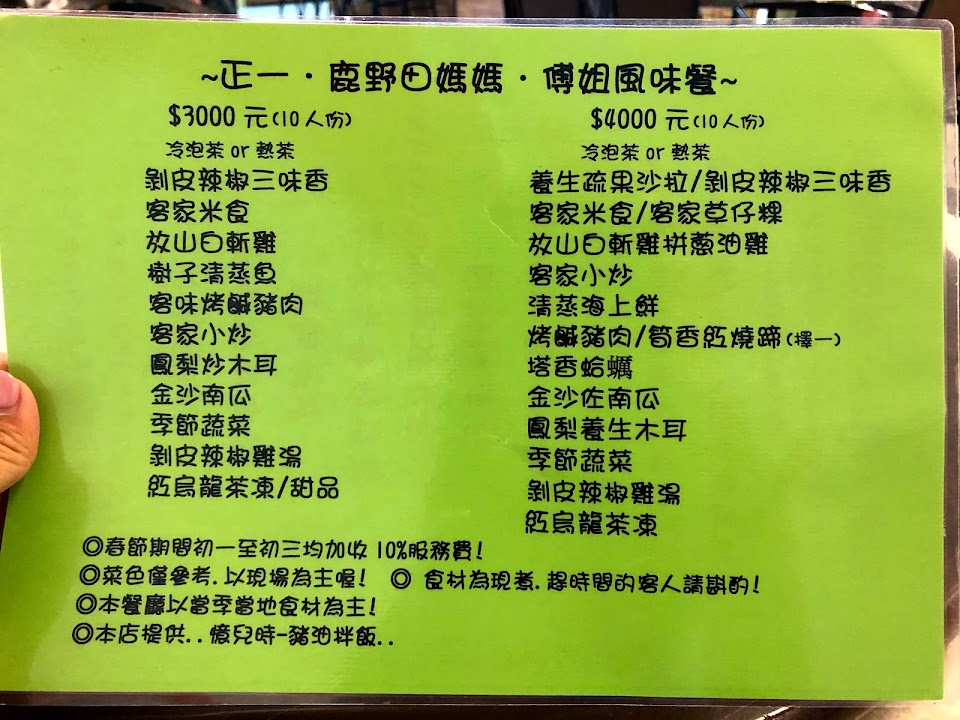 ~正一·鹿野田媽媽·傅姐風味餐~
$3000 元(10人份)
冷泡茶 or 熱茶
剝皮辣椒三味香
客家米食
放山白斬雞
樹子清蒸魚
客味烤鹹豬肉
客家小炒
鳳梨炒木耳
金沙南瓜
季節蔬菜
剝皮辣椒雞湯
紅烏龍茶凍/甜品
$4000 元(10人份)
冷泡茶 or 熱茶
養生蔬果沙拉/剝皮辣椒三味香
客家米食/客家草仔粿
放山白斬雞拼蔥油雞
客家小炒
清蒸海上鮮
烤鹹豬肉/筍香紅燒蹄(擇一)
塔香蛤蠣
金沙佐南瓜
鳳梨養生木耳
季節蔬菜
剝皮辣椒雞湯
紅烏龍茶凍
◎春節期間初一至初三均加收10%服務費!
◎菜色僅參考.以現場為主喔! ◎ 食材為現煮.趕時間的客人請斟酌!
◎本餐廳以當季當地食材為主!
◎本店提供..憶兒時-豬油拌飯..